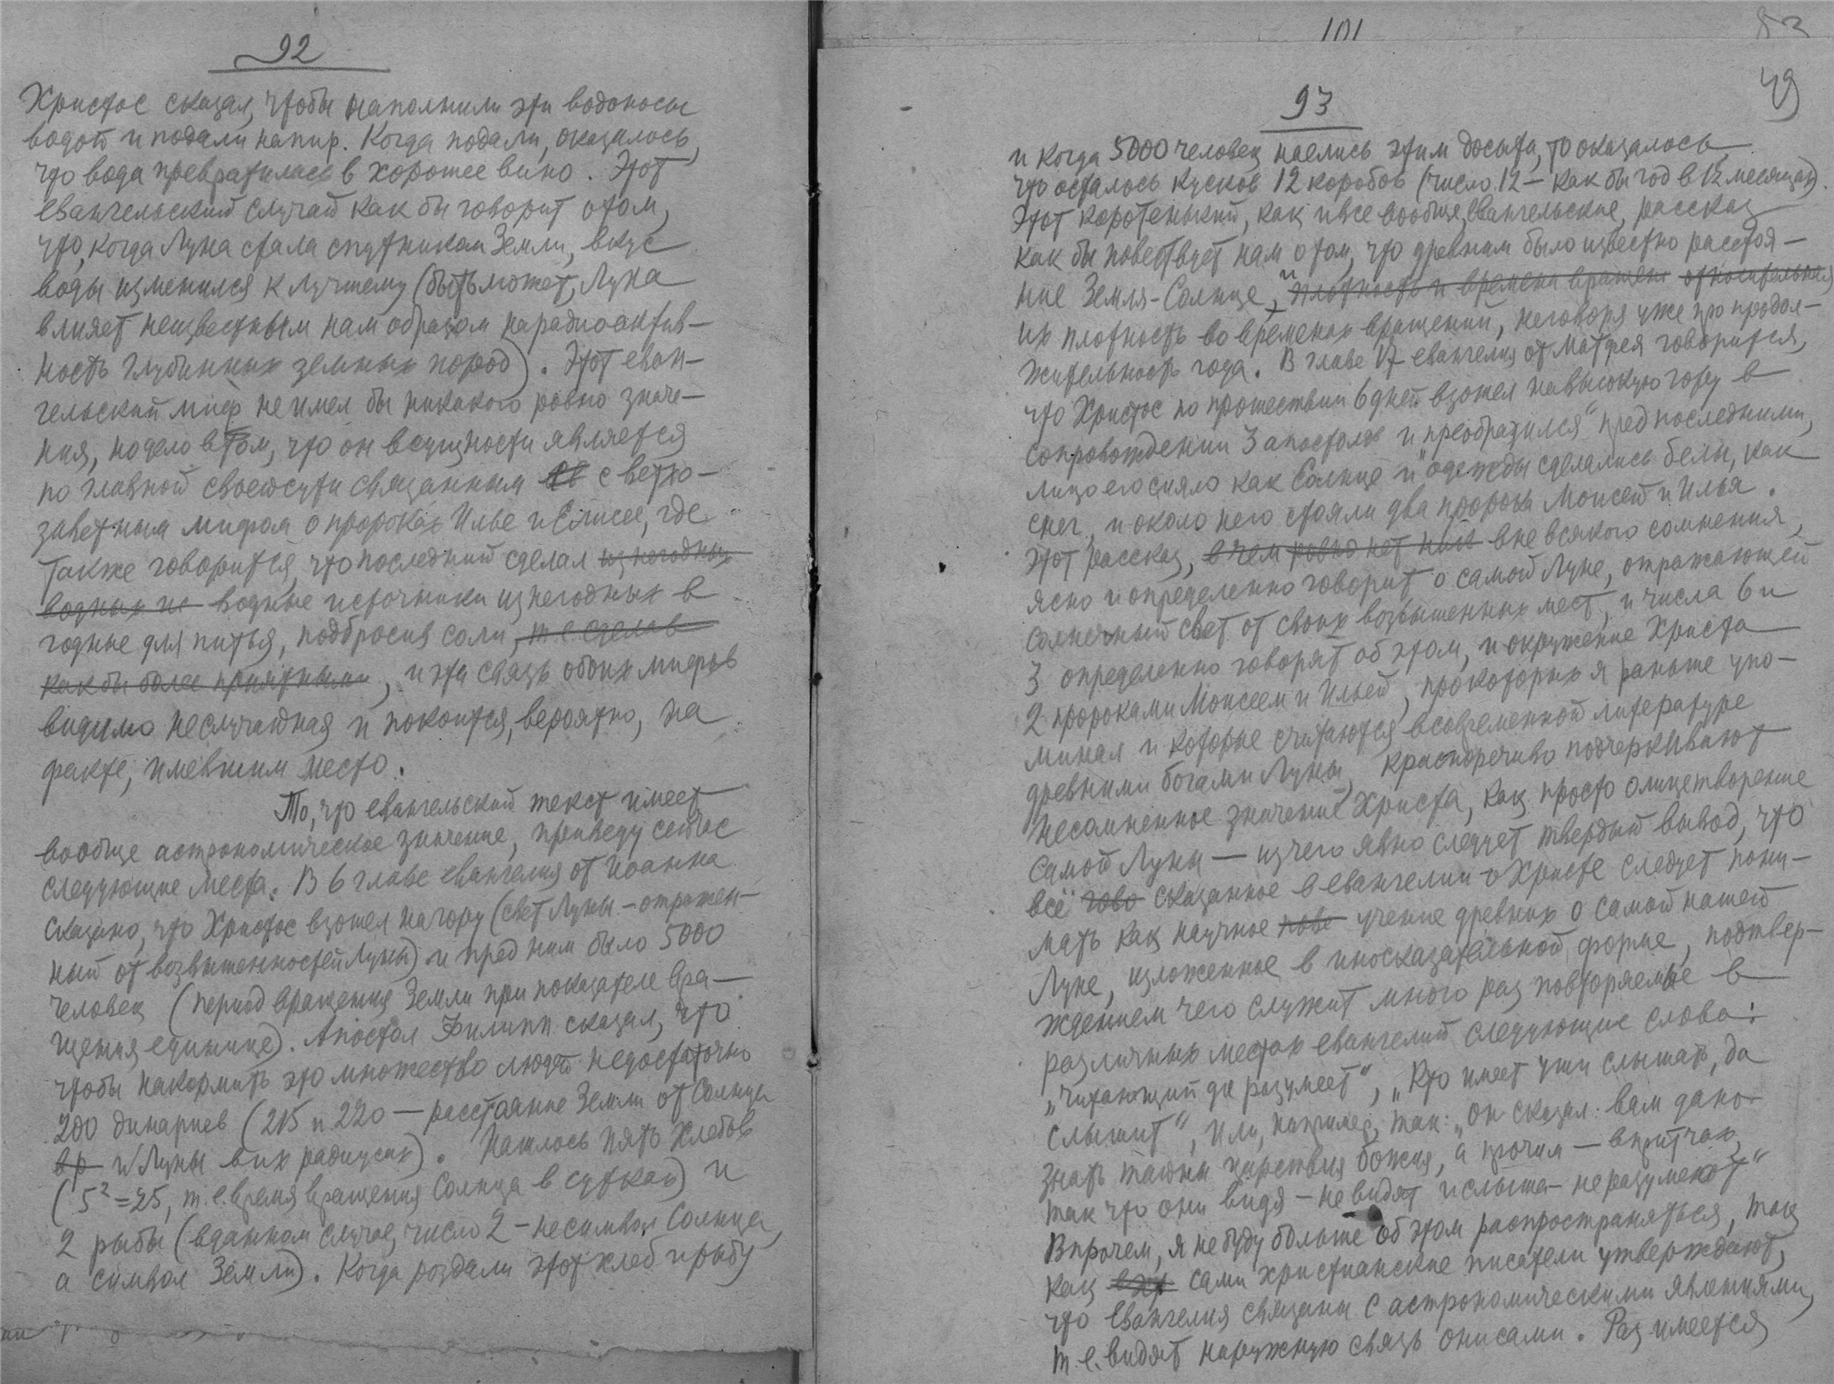 92
Христос сказал, чтобы наполнили эти водоносы
водой и подали на пир. Когда подали, оказалось,
что вода превратилась в хорошее вино. Этот
евангельский случай как бы говорит о том,
что, когда Луна стала спутником Земли, вкус
воды изменился к лучшему (быть может, Луна
влияет неизвестным нам образом на радиоактив-
ность глубинных земных пород). Этот еван-
гельский миф не имел бы никакого ровно значе-
ния, но дело в том, что он в сущности является
по главной своей сути связанным с ветхо-
заветным мифом о пророках Илье и Елисее, где
также говорится, что последний сделал из негодных
водных ис водные источники из негодных в
годные для питья, подбросив соли, т.е сделав
как бы более приятными, и эта связь обоих мифов
видимо неслучайная и покоится, вероятно, на
факте, имевшим место.
То, что евангельский текст имеет
вообще астрономическое значение, приведу сейчас
следующие места. В 6 главе евангелия от Иоанна
сказано, что Христос взошел на гору (свет Луны - отражен-
ный от возвышенностей Луны) и пред ним было 5000
человек (период вращения Земли при показателе вра-
щения единице). Апостол Филипп сказал, что
чтобы накормить это множество людей недостаточно
200 динариев (215 и 220 — расстояние Земли от Солнца
в р и Луны в их радиусах). Нашлось пять хлебов
(5²=25, т.е. время вращения Солнца в сутках) и
2 рыбы (в данном случае, число 2 - не символ Солнца,
а символ Земли). Когда роздали этот хлеб и рыбу
101
93
49
и когда 5000 человек наелись этим досыта, то оказалось
что осталось кусков 12 коробов (число 12 - как бы год в 12 месяцах).
Этот коротенький, как и все вообще евангельские, рассказ
как бы повествует нам о том, что древним было известно расстоя-
ние Земля-Солнце, и плотность и времена вращения относительная
их плотность во временах вращений, не говоря уже про продол-
жительность года. В главе 17 евангелия от Матфея говорится,
что Христос по прошествии 6 дней взошел на высокую гору в
сопровождении 3 апостолов и „преобразился“ пред последними,
лицо его сияло как Солнце и „одежды сделались белы, как
снег, и около него стояли два пророка Моисей и Илья.
Этот рассказ, в чем ровно нет ник вне всякого сомнения,
ясно и определенно говорит о самой Луне, отражающей
солнечный свет от своих возвышенных мест, и числа 6 и
3 определенно говорят об этом, и окружение Христа
2 пророками Моисеем и Ильей, про которых я раньше упо-
минал и которые считаются в современной литературе
древними богами Луны, красноречиво подчеркивают
несомненное значение Христа, как просто олицетворение
самой Луны — из чего явно следует твердый вывод, что
всё гово сказанное в евангелии о Христе следует пони-
мать как научное пове учение древних о самой нашей
Луне, изложенное в иносказательной форме, подтвер-
ждением чего служит много раз повторяемые в
различных местах евангелий следующие слова:
„читающий да разумеет“, „Кто имеет уши слышать, да
слышит“, или, например, так: „он сказал: вам дано
знать тайны царствия божия, а прочим — в притчах,
так что они видя - не видят и слыша - не разумеют“
Впрочем, я не буду больше об этом распространяться, так
как сами христианские писатели утверждают,
что евангелия связаны с астрономическими явлениями,
т.е. видят наружную связь они сами. Раз имеется